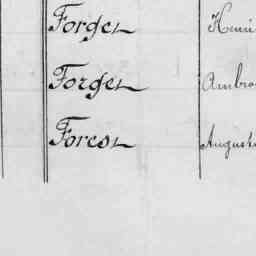 Forget Henri
Forget Ambro
Forest Auguste